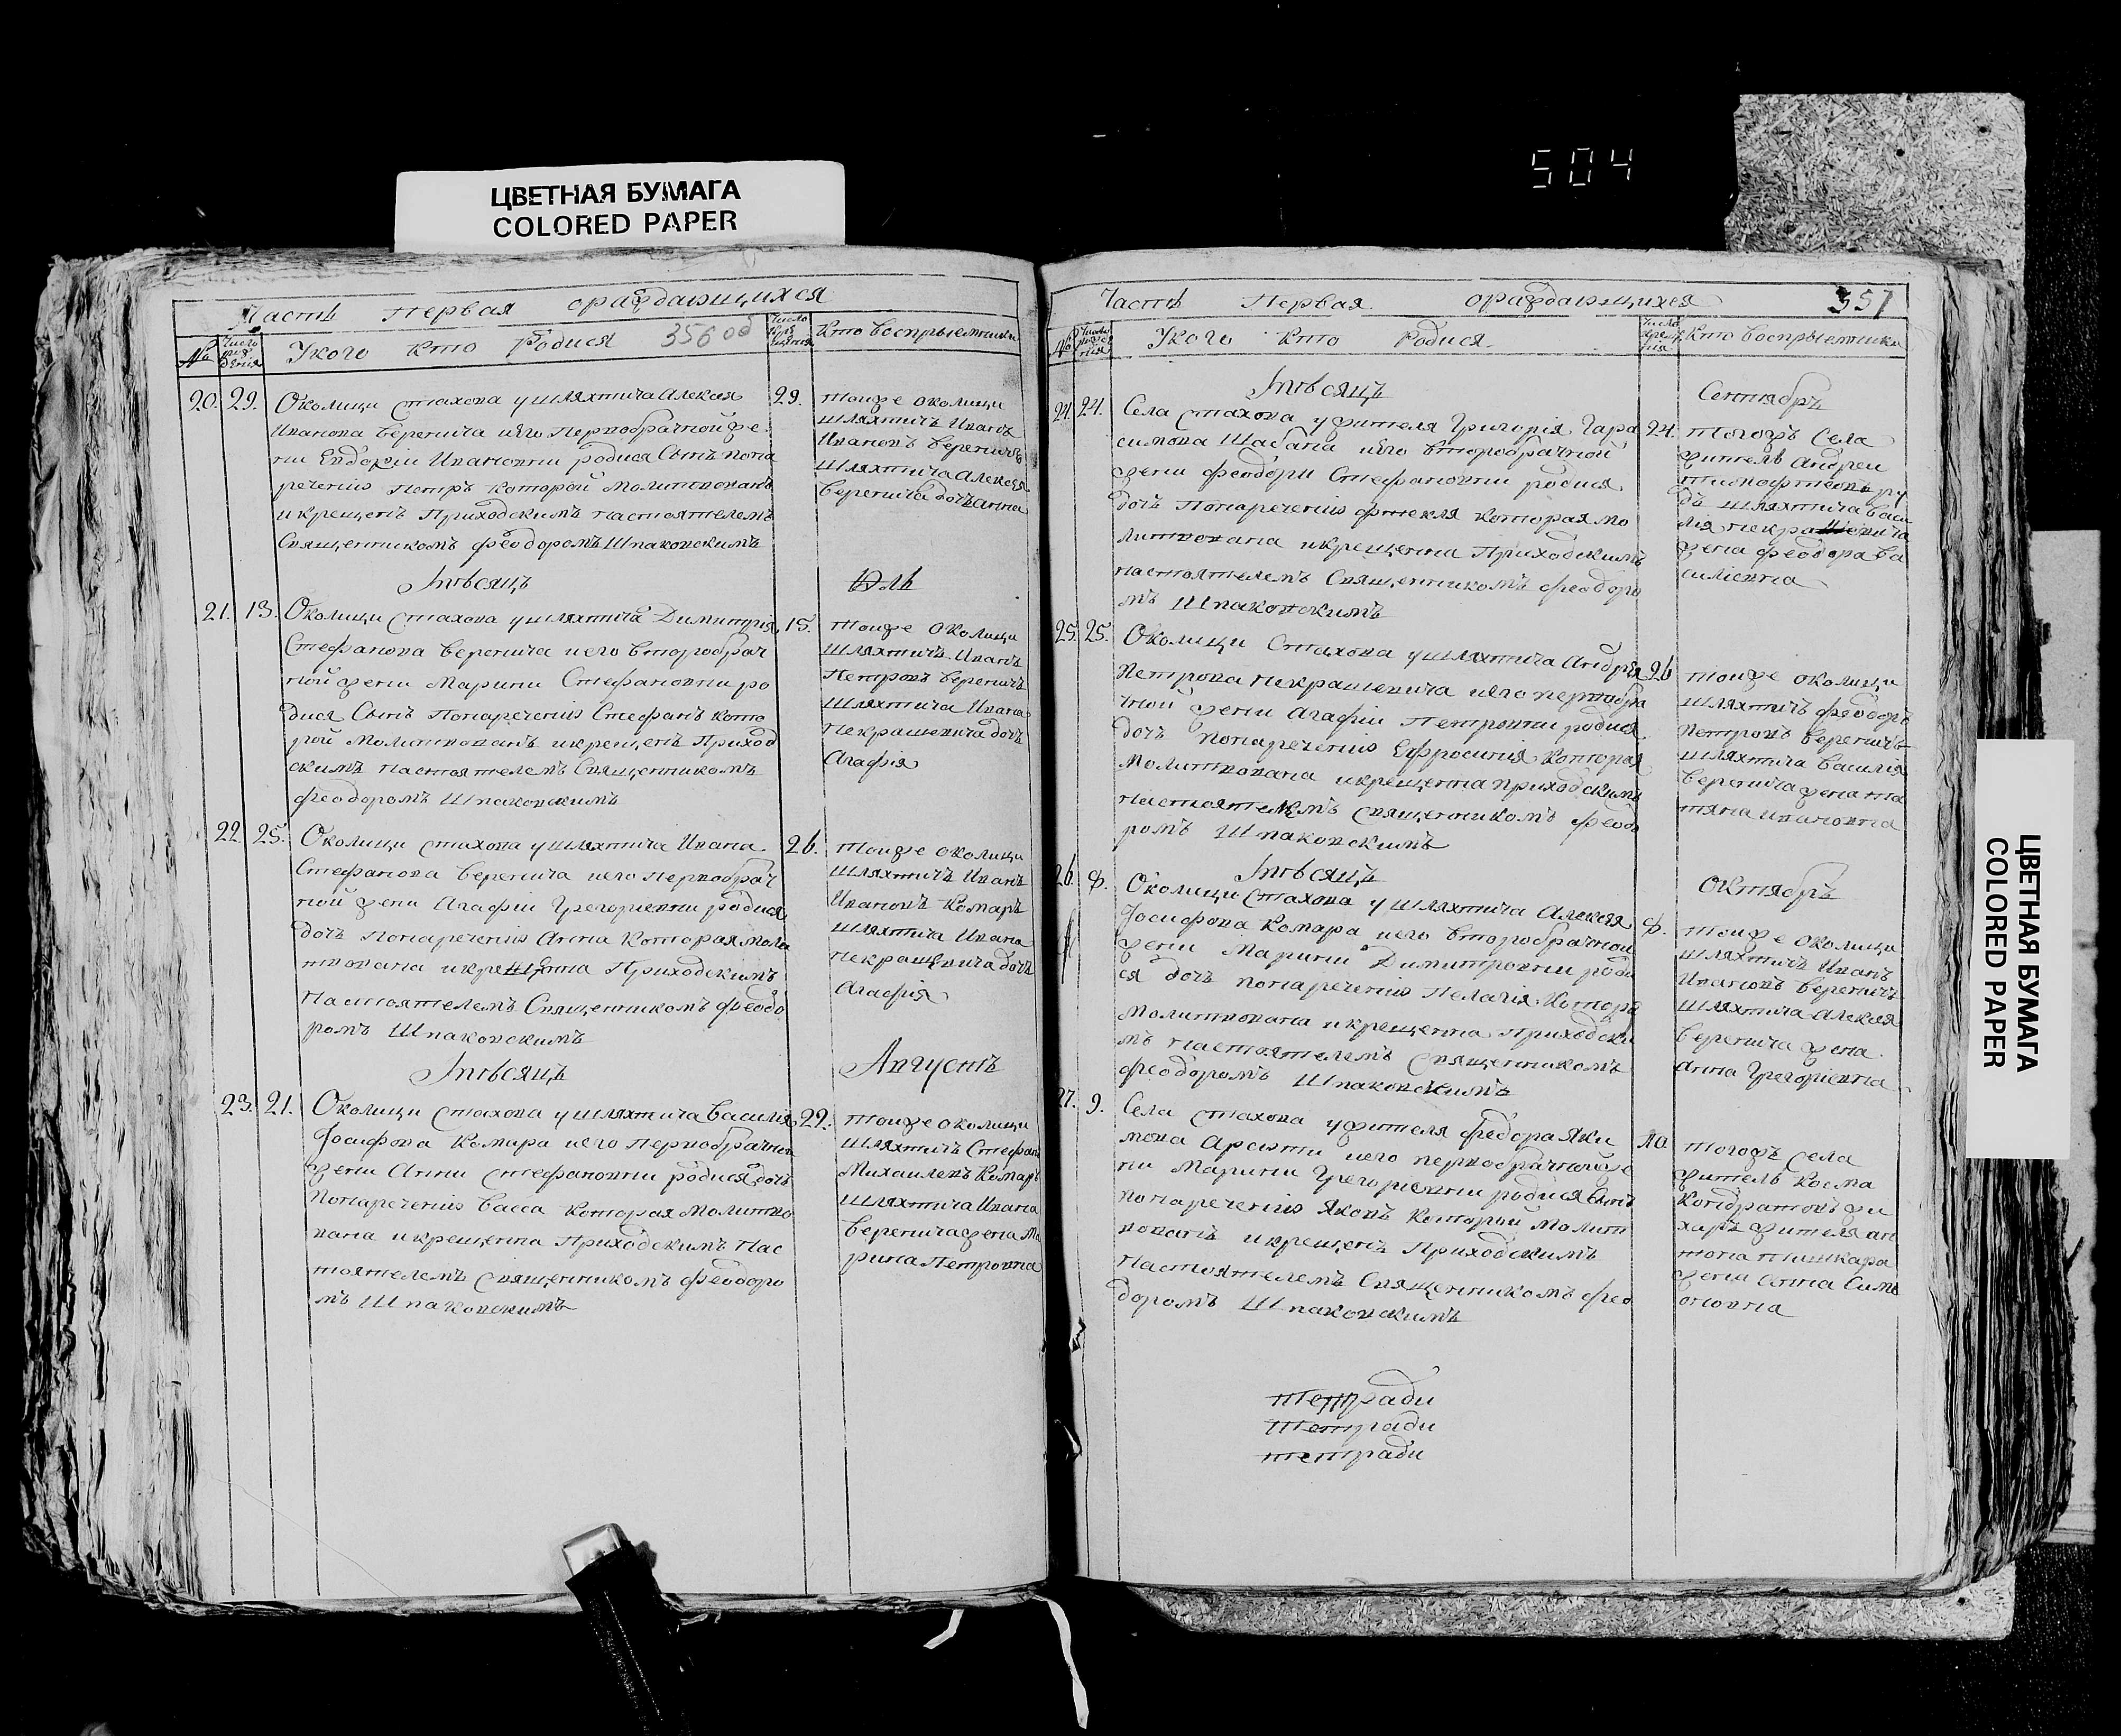 504
ЦВЕТНАЯ БУМАГА
COLORED PAPER
Часть первая ораждающихся
№ Число рождения Укого Кто Родися 356 об Число крещения Кто воспрыемники
20. 29. Околици Стахова ушляхтича Алексея
Иванова Веренича иего Первобрачной же
ни Евдокіи Ивановни родися Сынъ пона
реченіи Петръ которой молитвованъ
икрещенъ Приходскимъ настоятелемъ
Священникомъ Феодоромъ Шпаковскимъ
29. тоиже околици
шляхтичъ Иванъ
Ивановъ Вереничъ
шляхтича Алексея
Веренича дочъ анна
Мѣсяцъ Юль
21. 13. Околици Стахова ушляхтича Димитрія
Стефанова Веренича иего второбрач
ной жени Марини Стефановни ро
дися Сынъ Понареченіи Стефанъ кото
рой молитвованъ икрещенъ Приход
скимъ настоятелемъ Священникомъ
Феодоромъ Шпаковскимъ
15. тоиже околици
шляхтичъ Иванъ
Петровъ Вереничъ
шляхтича Ивана
Некрашевича дочъ
Агафія
22. 25. Околици Стахова ушляхтича Ивана
Стефанова Веренича иего Первобрач
ной жени Агафіи Грегориевни родися
дочъ Понареченіи Анна Которая моли
твована икрещенна Приходскимъ
Настоятелемъ Священникомъ Феодо
ромъ Шпаковскимъ
26. тоиже околици
шляхтичъ Иванъ
Ивановъ Комаръ
шляхтича Ивана
Некрашевича дочъ
Агафія
Мѣсяцъ Августъ
23. 21. Околици Стахова ушляхтича Василія
Іосифова Комара иего Первобрачной
жени Анни Стефановни родися дочъ
Понареченіи Васса Которая молитво
вана икрещенна Приходскимъ Нас
тоятелемъ Священникомъ Феодоро
мъ Шпаковскимъ
22. тоиже околици
шляхтичъ Стефанъ
Михаилевъ Комаръ
шляхтича Ивана
Веренича жена Ма
рина Петровна
Часть Первая ораждающихся 357
№ Число рождения Укого Кто Родися Число крещения Кто воспрыемники
Мѣсяцъ Сентябръ
24. 24. Села Стахова ужителя Григорія Гара
симова Шабана иего второбрачной
жени Феодори Стефановни родися
дочъ Понареченіи Фтекля которая мо
литвована икрещенна Приходскимъ
настоятелемъ Священникомъ Феодоро
мъ Шпаковскимъ
24. тогожъ Села
житель Андреи
шляхтича Васи
лія Некрашевича
жена Феодора Ва
силіевна
25. 25. Околици Стахова ушляхтича Андрея
Петрова Некрашевича иего первобра
чной жени Агафіи Петровни родися
дочъ понареченіи Ефросинія Которая
Молитвована икрещенна приходскимъ
Настоятелемъ священникомъ Феодо
ромъ Шпаковскимъ
26 тоиже околици
шляхтичъ Феодоръ
Петровъ Вереничъ
шляхтича Василія
Веренича жена та
тяна ивановна
Мѣсяцъ Октябръ
26. 8. Околици Стахова ушляхтича Алексея
Іосифова Комара иего второбрачной
жени Марини Димитровни роди
ся дочъ понареченіи Пелагія Котора
Молитвована икрещенна Приходски
мъ Настоятелемъ Священникомъ
Феодоромъ Шпаковскимъ
8. тоиже околици
шляхтичъ Иванъ
Ивановъ Вереничъ
шляхтича Алексея
Веренича жена
Анна Грегоріевна
27. 9. Села Стахова ужителя Федора Яки
мова иего первобрачной же
ни Марини Грегориевни родися Сынъ
понареченіи Яковъ Который Молит
вованъ икрещенъ Приходскимъ
Настоятелемъ Священникомъ Фео
доромъ Шпаковскимъ
10. тогожъ села
житель Косма
Кондратовъ жи
харъ жителя ан
тона пишкара
жени Анна Сим
оновна
тетради
тетради
тетради
ЦВЕТНАЯ БУМАГА
COLORED PAPER